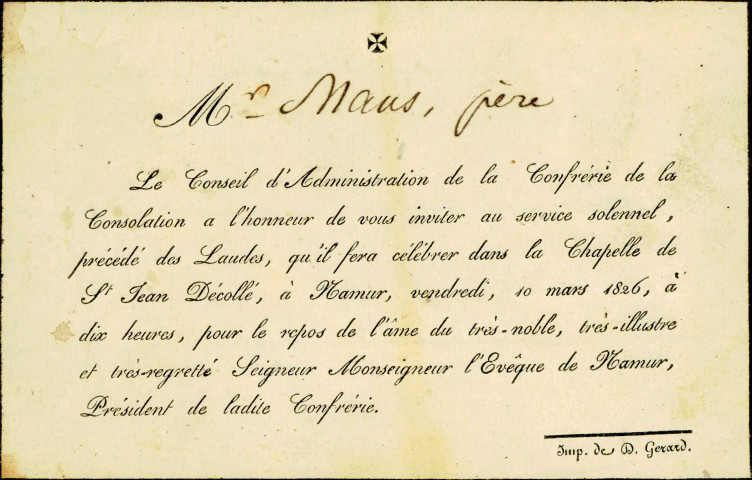 Mr Maus, père
Le Conseil d'Administration de la Confrérie de la
Consolation a l'honneur de vous inviter au service solennel,
précédé des Laudes, qu'il fera célébrer dans la Chapelle de
St Jean Décollé, à Namur, vendredi, 10 mars 1826, à
dix heures, pour le repos de l'âme du très-noble, très-illustre
et très-regretté Seigneur Monseigneur l'Evêque de Namur,
Président de ladite Confrérie.
Imp. de D. Gerard.